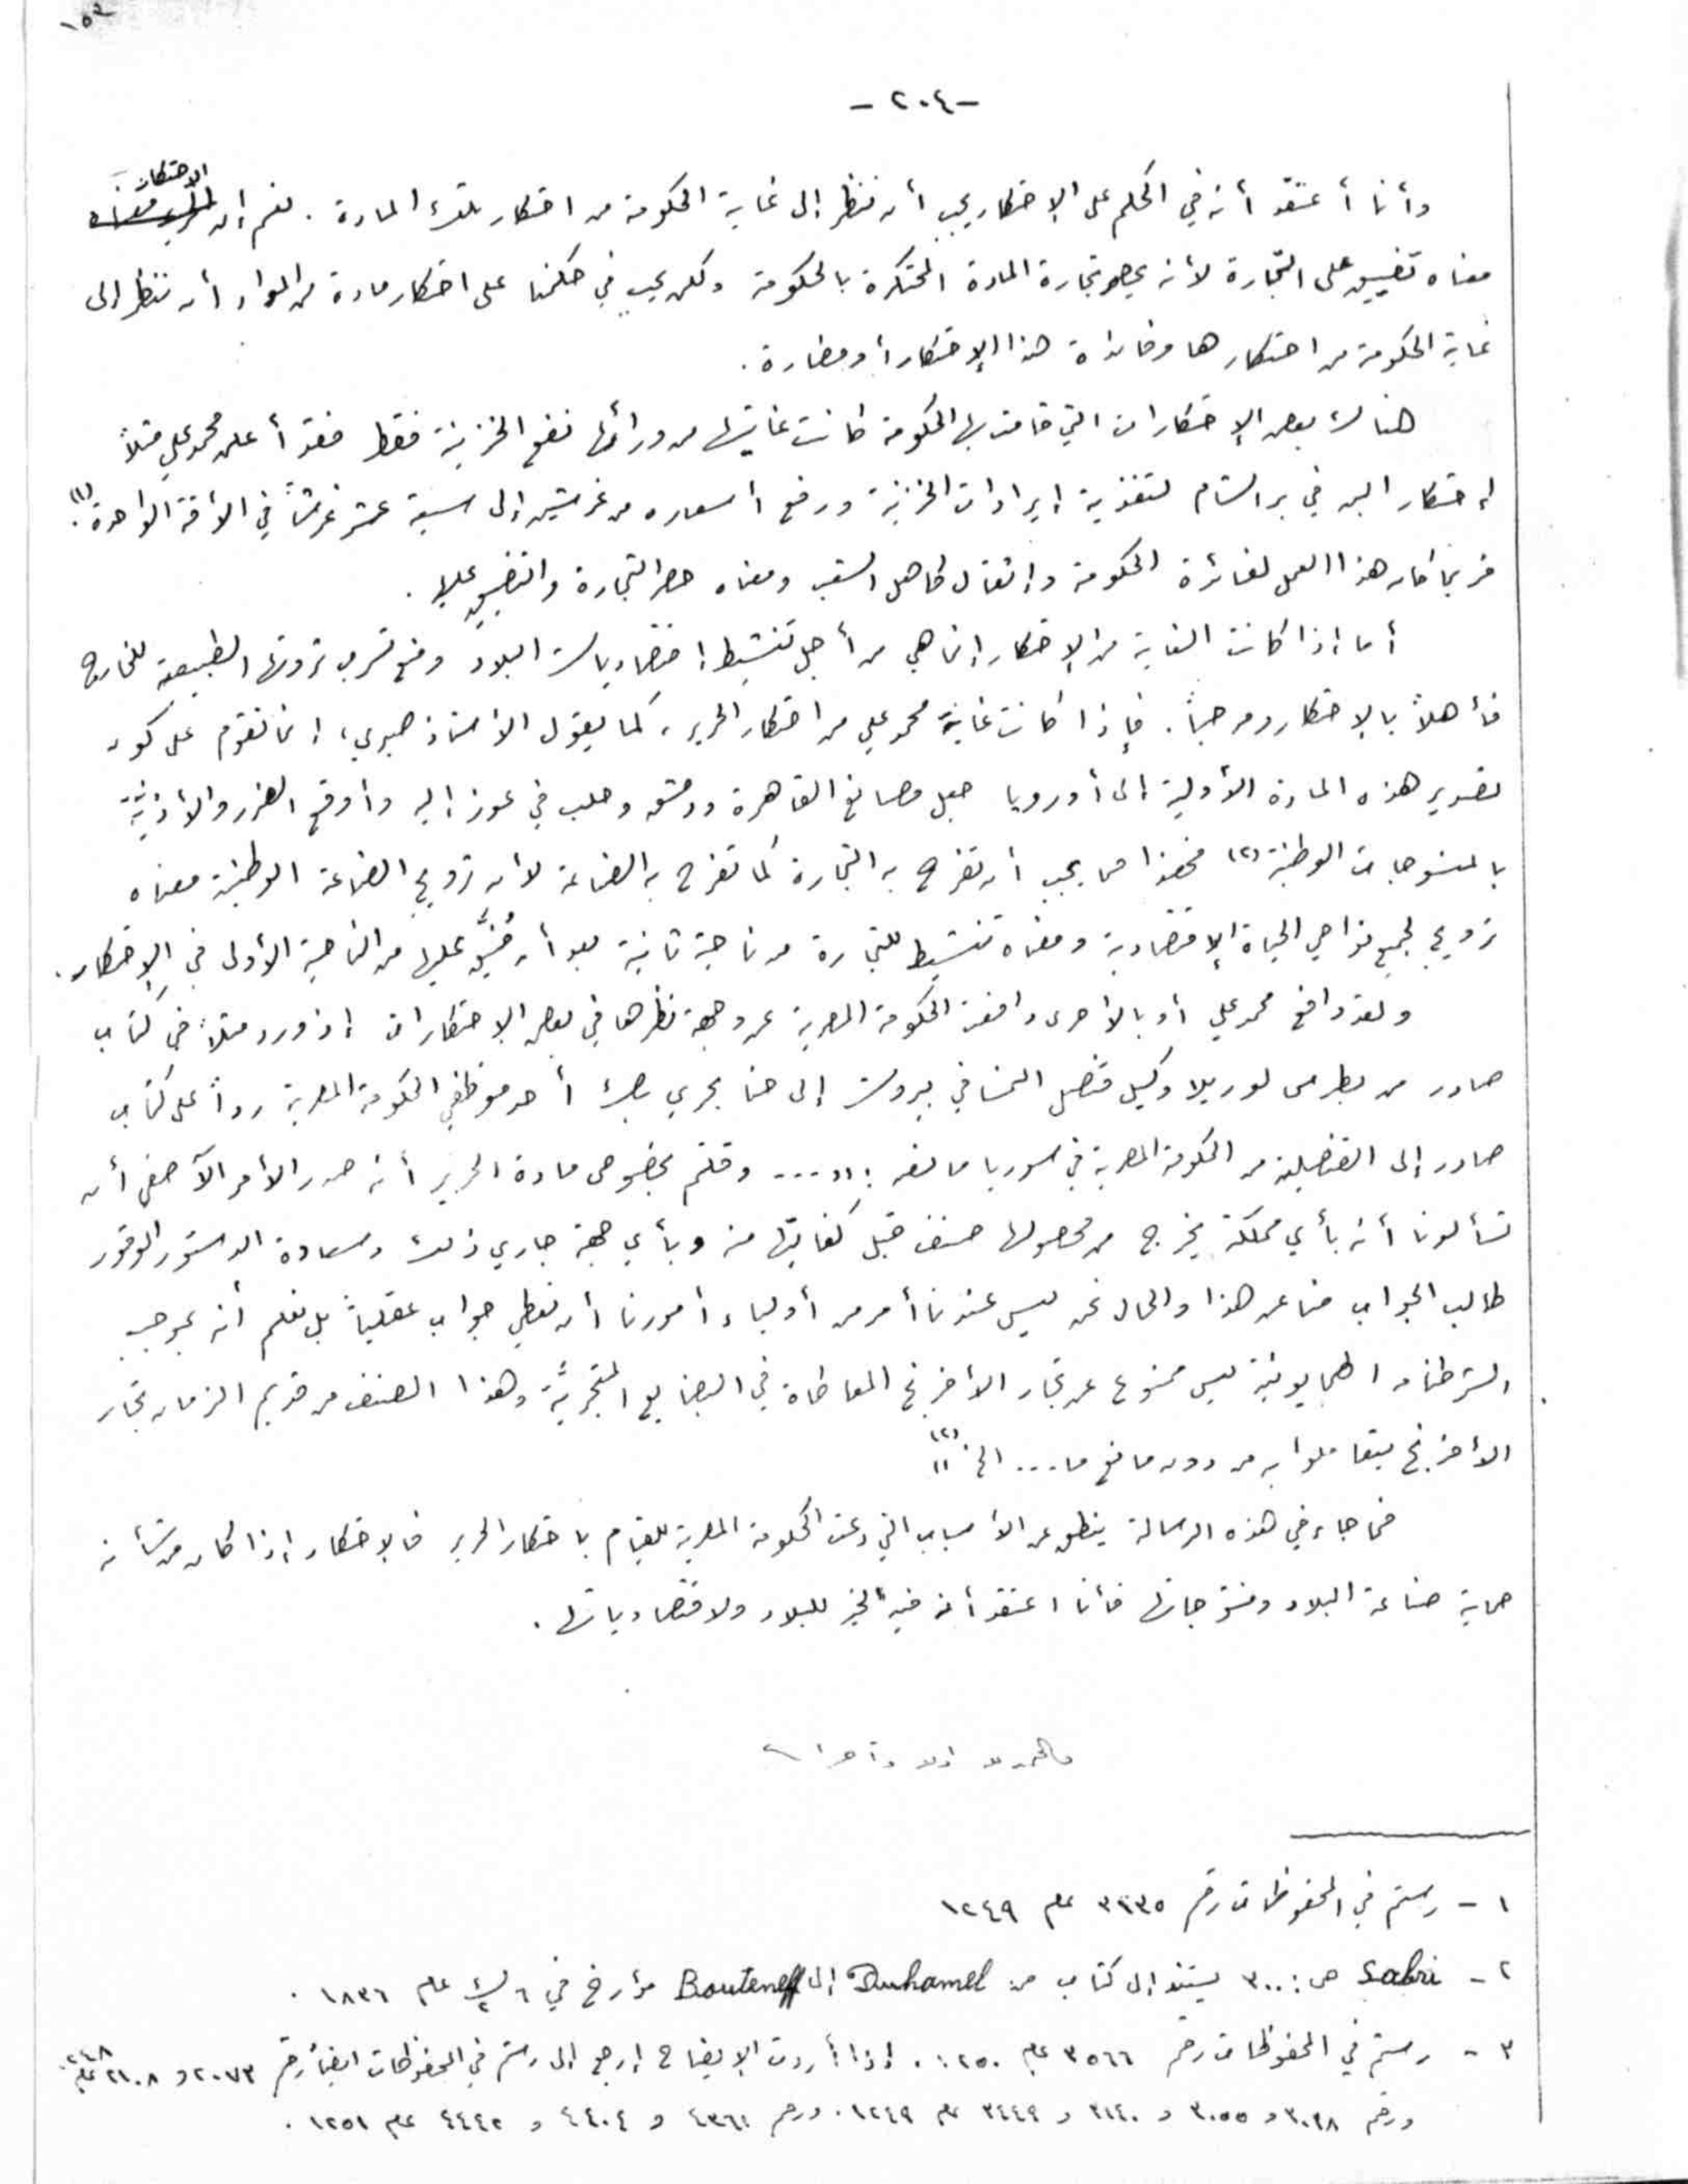 ١٥٢
- ٢٠٤ -
الاحتكار
وأنا أعتقد أنه في الحكم على الإحتكار يجب أن ننظر إلى غاية الحكومة من احتكار تلك المادة . نعم إن
معناه تضييق على التجارة لأنه يحصر تجارة المادة المحتكرة بالحكومة ولكن يجب في حكمنا على احتكار مادة من المواد أن ننظر إلى
غاية الحكومة من احتكارها وفائدة هذا الإحتكار أو مضاره .
هناك بعض الإحتكارات التي قامت بها الحكومة كانت غايتها من ورائها نفع الخزينة فقط فقد أعلن محمد علي مثلاً
إحتكار البن في بر الشام لتغذية إيرادات الخزينة ورفع أسعاره من غرشين إلى سبعة عشر غرشاً في الأقة الواحدة (١) .
فربما كان هذا العمل لفائدة الحكومة وإثقال كاهل الشعب ومعناه حصر التجارة والتضييق عليها .
أما إذا كانت الغاية من الإحتكار إنما هي من أجل تنشيط إقتصاديات البلاد ومنع تسرب ثروتها الطبيعية للخارج
فأهلاً بالإحتكار ومرحباً . فإذا كانت غاية محمد علي من احتكار الحرير ، كما يقول الأستاذ صبري ، إنما تقوم على كون
تصدير هذه المادة الأولية إلى أوروبا جعل مصانع القاهرة ودمشق وحلب في عوز إليه وأوقع الضرر والأذية
بالمنسوجات الوطنية (٢) فهذا مما يجب أن تفرح به التجارة كما تفرح به الصناعة لأن ترويج الصناعة الوطنية معناه
ترويج لجميع نواحي الحياة الإقتصادية ومعناه تنشيط للتجارة من ناحية ثانية بعد أن ضُيِّق عليها من الناحية الأولى في الإحتكار .
ولقد دافع محمد علي أو بالأحرى دافعت الحكومة المصرية عن وجهة نظرها في بعض الإحتكارات إذ ورد مثلاً في كتاب
صادر من بطرس لوريلا وكيل قنصل النمسا في بيروت إلى حنا بحري بك أحد موظفي الحكومة المصرية رداً على كتاب
صادر إلى القنصلية من الحكومة المصرية في سوريا ما نصه : " .... وقلتم بخصوص مادة الحرير أنه صدر الأمر الآصفي أن
تسألونا أنه بأي مملكة يخرج من محصولها صنف قبل كفايتها منه وبأي جهة جاري ذلك وسعادة الدستور الوقور
طالب الجواب منا عن هذا والحال نحن ليس عندنا أمر من أولياء أمورنا أن نعطي جواب عقلياً بل نعلم أنه بموجب
الشرطنامه الهمايونية ليس ممنوع عن تجار الأفرنج المعاطاة في البضايع المتجريّة وهذا الصنف من قديم الزمان تجار
الأفرنج يتعاملوا به من دون مانع ما ... الخ . " (٣)
فما جاء في هذه الرسالة ينطق عن الأسباب التي دعت الحكومة المصرية للقيام باحتكار الحرير فالإحتكار إذا كان من شأنه
حماية صناعة البلاد ومنتوجاتها فأنا اعتقد أن فيه الخير للبلاد ولاقتصادياتها .
١ - رستم في المحفوظات رقم ٣٢٣٥ عام ١٢٤٩
٢ - Sabri ص : ٣٠٠ يستند إلى كتاب من Duhamel إلى Bouteneff مؤرخ في ٦ ك٢ عام ١٨٣٦ .
٣ - رستم في المحفوظات رقم ٣٥٦٦ عام ١٢٥٠ . إذا أردت الإيضاح إرجع إلى رستم في المحفوظات ايضاً رقم ٢٠٧٣ و ٢١٠٨ عام ١٢٤٨
ورقم ٣٠٣٨ و ٣٠٥٥ و ٣١٤٠ و ٣٤٤٩ عام ١٢٤٩ . ورقم ٤٣٦١ و ٤٤٠٤ و ٤٤٤٢ عام ١٢٥١ .